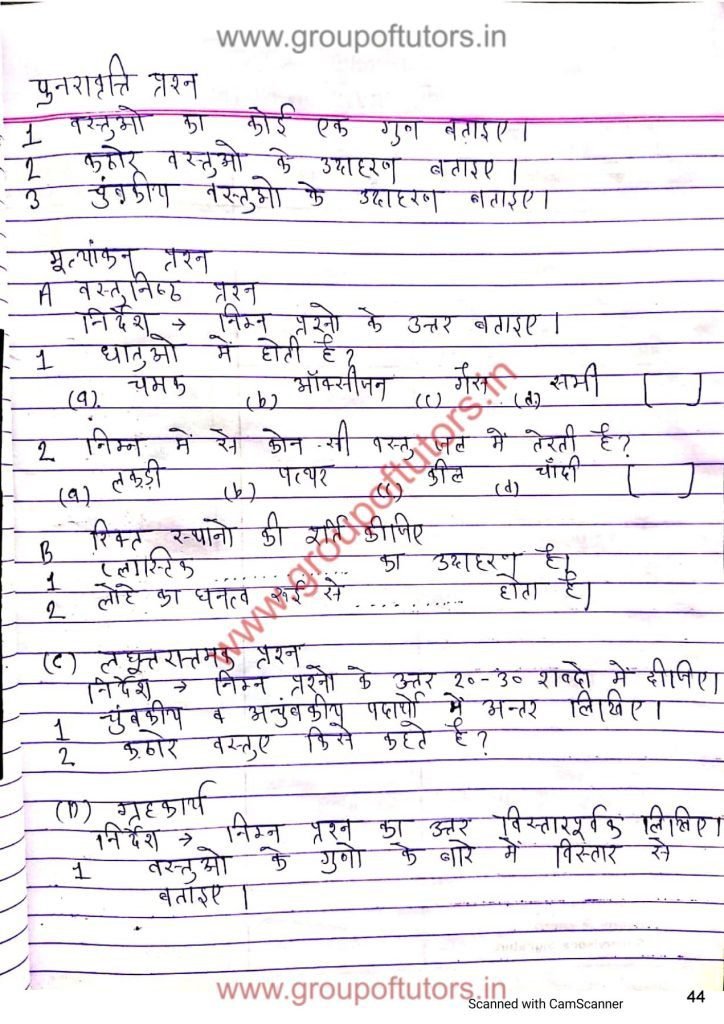 www.groupoftutors.in
पुनरावृत्ति प्रश्न
1 वस्तुओ का कोई एक गुण बताइए।
2 कठोर वस्तुओ के उदाहरण बताइए।
3 चुंबकीय वस्तुओ के उदाहरण बताइए।
मूल्यांकन प्रश्न
A वस्तुनिष्ठ प्रश्न
निर्देश → निम्न प्रश्नो के उत्तर बताइए।
1 धातुओ में होती है?
(a) चमक (b) ऑक्सीजन (c) गैस (d) सभी
2 निम्न में से कोन सी वस्तु जल में तेरती है?
(a) लकड़ी (b) पत्थर (c) कील (d) चाँदी
B रिक्त स्थानो की पूर्ति कीजिए
1 प्लास्टिक .............. का उदाहरण है।
2 लोहे का घनत्व रूई से ........... होता है।
(C) लघूत्तरात्मक प्रश्न
निर्देश → निम्न प्रश्नो के उत्तर २०-३० शब्दो में दीजिए।
1 चुंबकीय व अचुंबकीय पदार्थो में अन्तर लिखिए।
2 कठोर वस्तुए किसे कहते है?
(D) ग्रहकार्य
निर्देश → निम्न प्रश्न का उत्तर विस्तारपूर्वक लिखिए।
1 वस्तुओ के गुणो के बारे में विस्तार से
बताइए।
www.groupoftutors.in
www.groupoftutors.in
Scanned with CamScanner
44